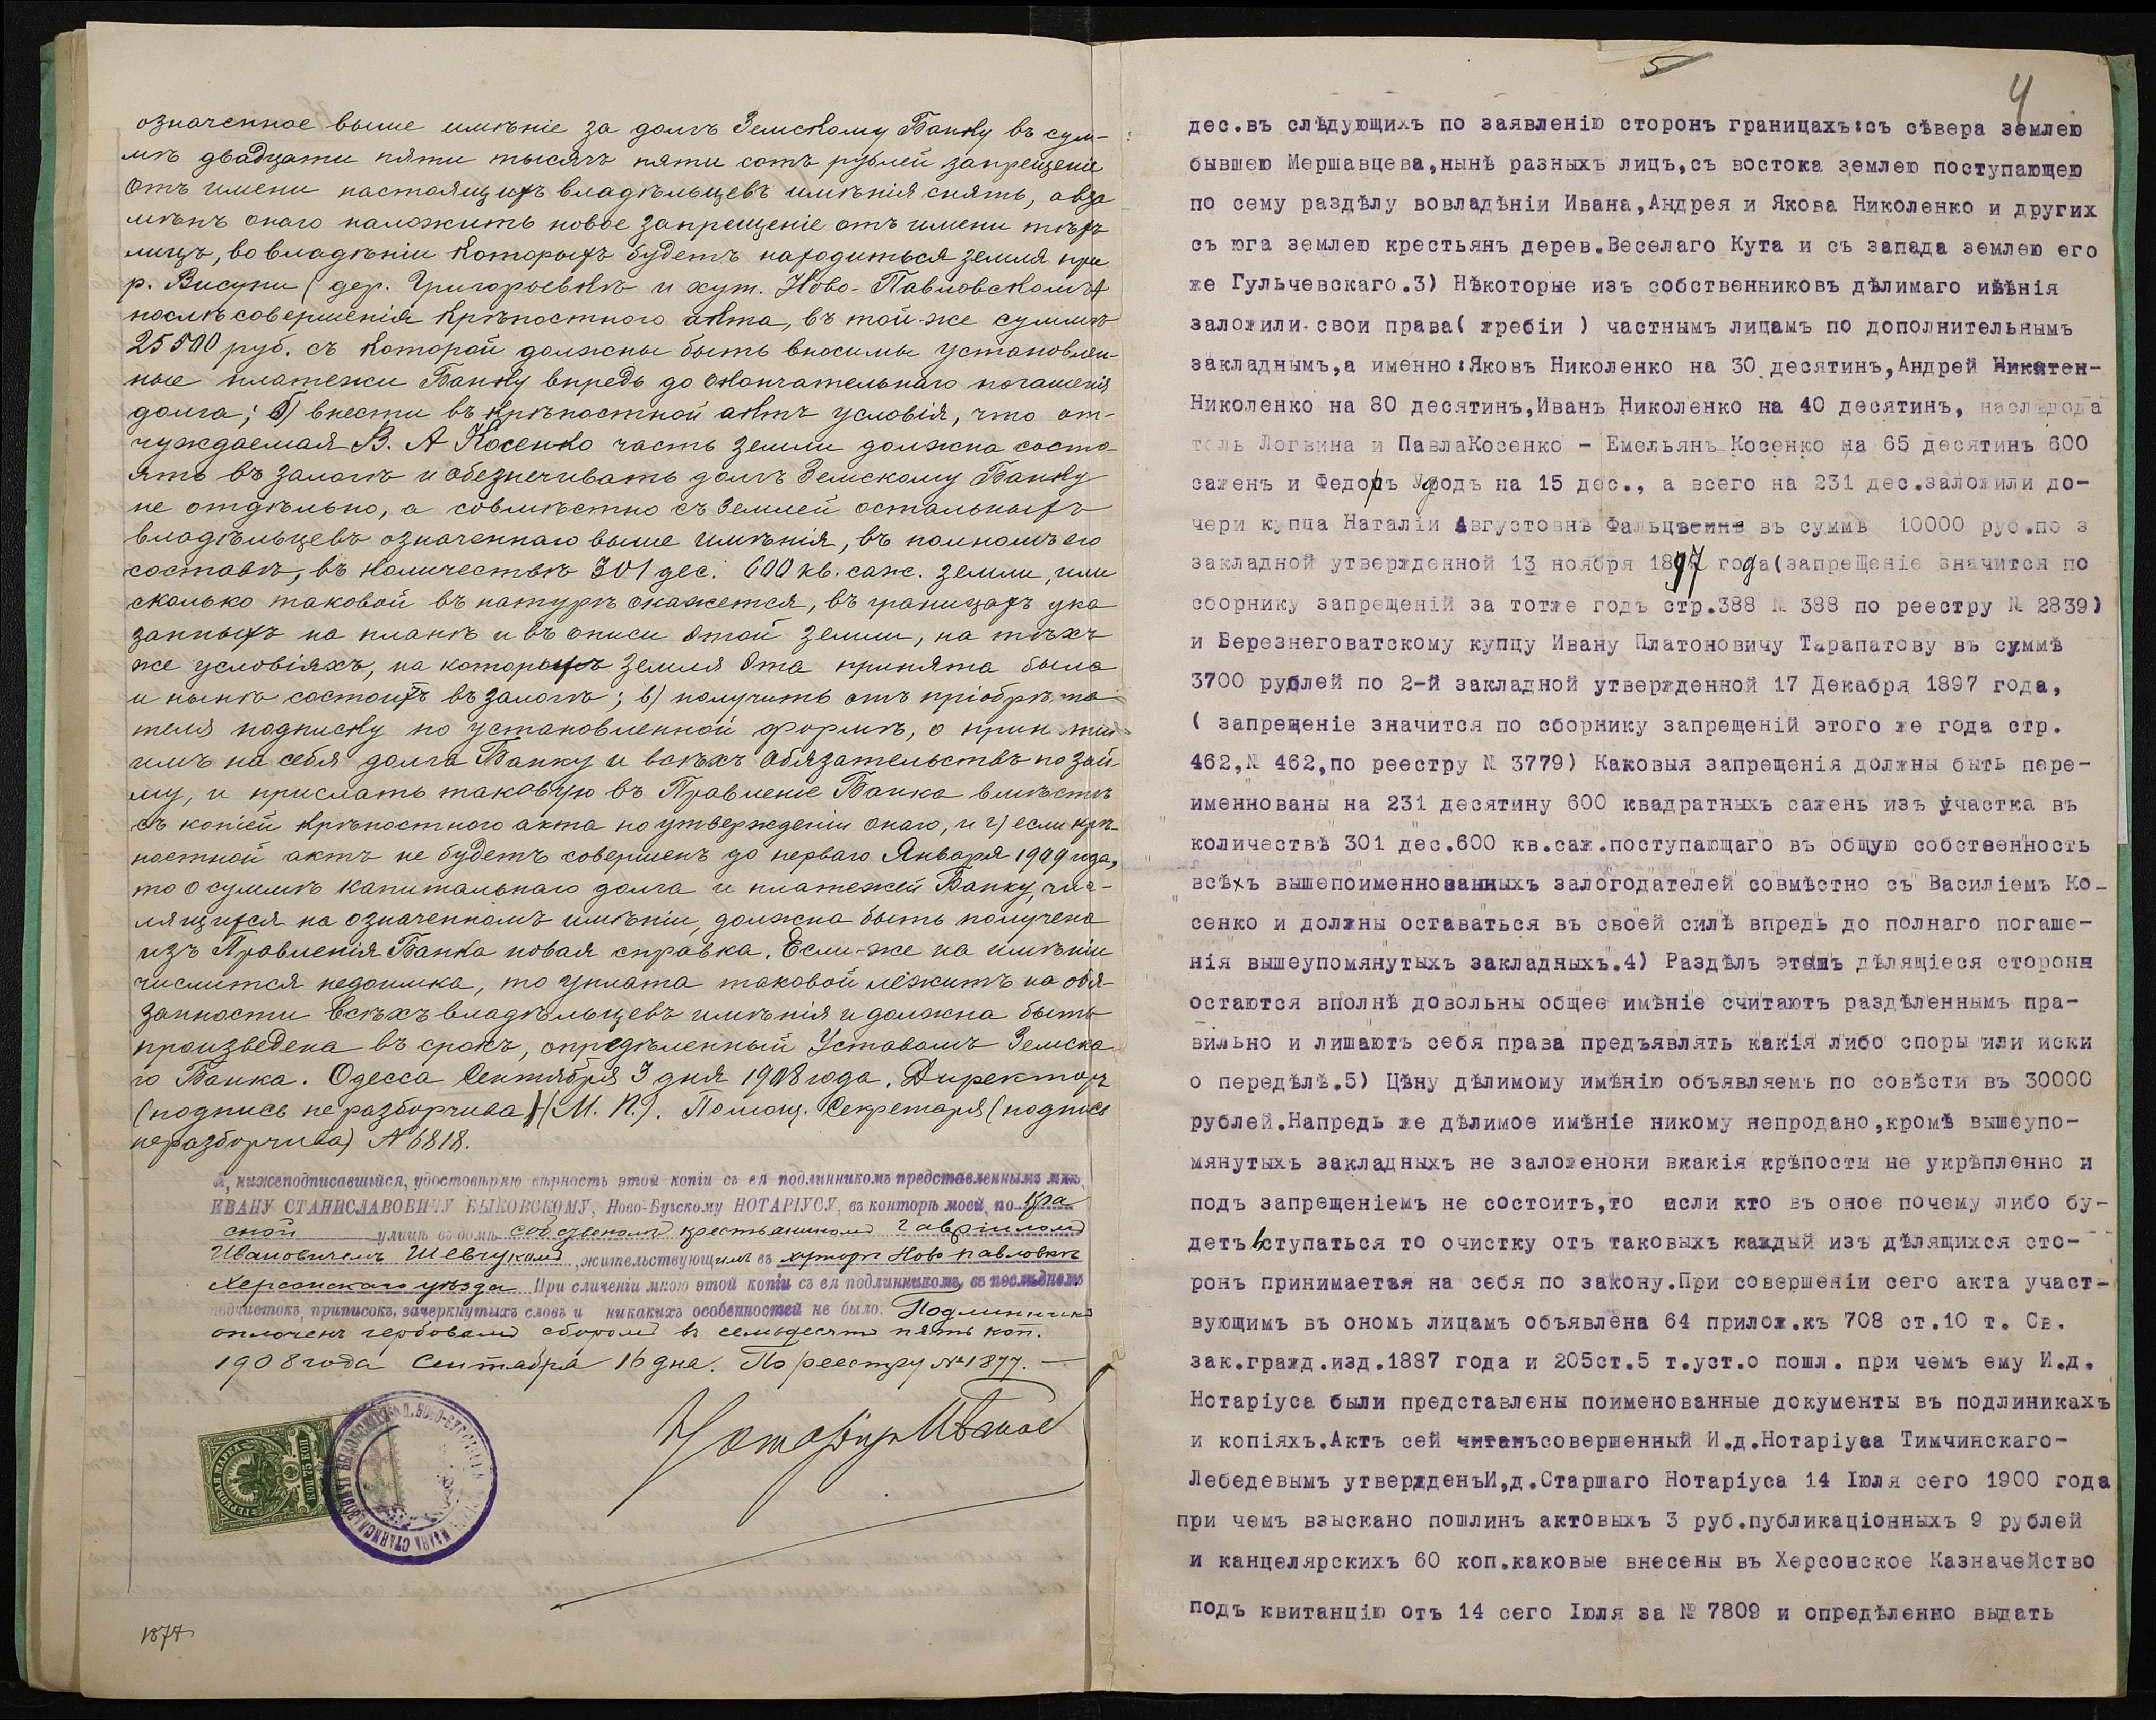 означенное выше имѣніе за долгъ Земскому Банку въ сум-
мѣ двадцати пяти тысячъ пяти сотъ рублей запрещеніе
отъ имени настоящихъ владѣльцевъ имѣнія снять, а вза
мѣнъ онаго наложить новое запрещеніе отъ имени тѣхъ
лицъ, во владѣніи которыхъ будетъ находиться земля при
р. Висуни (дер. Григорьевкѣ и хут. Ново-Павловскомъ)
послѣ совершенія крѣпостного акта, въ той-же суммѣ
25500 руб. съ которой должны быть вносимы установлен-
ные платежи Банку впредь до окончательнаго погашенія
долга; б) внести въ крѣпостной актъ условія, что от-
чуждаемая В. А Косенко часть земли должна состо-
ять въ залогѣ и обезпечивать долгъ Земскому Банку
не отдѣльно, а совмѣстно съ землей остальныхъ
владѣльцевъ означеннаго выше имѣнія, въ полномъ его
составѣ, въ количествѣ 301 дес. 600 кв. саж. земли, или
сколько таковой въ натурѣ окажется, въ границахъ ука
занныхъ на планѣ и въ описи этой земли, на тѣхъ
же условіяхъ, на которыхъ земля эта принята была
и нынѣ состоитъ въ залогѣ; в) получить отъ пріобрѣта
теля подписку по установленной формѣ, о принятіи
имъ на себя долга Банку и всѣхъ обязательствъ по зай-
му, и прислать таковую въ Правленіе Банка вмѣстѣ
съ копіей крѣпостного акта по утвержденіи онаго, и г) если крѣ-
постной актъ не будетъ совершенъ до перваго Января 1909 года,
то о суммѣ капитальнаго долга и платежей Банку, чис-
лящихся на означенномъ имѣніи, должна быть получена
изъ Правленія Банка новая справка. Если-же на имѣніи
числится недоимка, то уплата таковой лежитъ на обя-
занности всѣхъ владѣльцевъ имѣнія и должна быть
произведена въ срокъ, опредѣленный Уставомъ Земска
го Банка. Одесса Сентября 3 дня 1908 года. Директоръ
(подпись неразборчива) (М. П.). Помощ. Секретаря (подпись
неразборчива) № 6818.
Я, нижеподписавшійся, удостовѣряю вѣрность этой копіи съ ея подлинникомъ представленнымъ мнѣ,
ИВАНУ СТАНИСЛАВОВИЧУ БЫКОВСКОМУ, Ново-Бугскому НОТАРІУСУ, въ конторѣ моей, по Кра
сной улицѣ въ домѣ собственомъ крестьяниномъ Гавріиломъ
Ивановичемъ Шевчукомъ, жительствующимъ въ хуторѣ Ново Павловкѣ
Херсонскаго уѣзда При сличеніи мною этой копіи съ ея подлинникомъ, въ послѣднемъ
подчистокъ, приписокъ, зачеркнутыхъ словъ и никакихъ особенностей не было. Подлинникъ
оплоченъ гербовымъ сборомъ въ семьдесятъ пять коп.
1908 года Сентября 16 дня. По реестру № 1877.
ГЕРБОВАЯ МАРКА
КОП 75 КОП
Нотаріусъ
1877
5
4
дес.въ слѣдующихъ по заявленію сторонъ границахъ:съ сѣвера землею
бывшею Мершавцева,нынѣ разныхъ лицъ,съ востока землею поступающею
по сему раздѣлу вовладѣніи Ивана,Андрея и Якова Николенко и других
съ юга землею крестьянъ дерев.Веселаго Кута и съ запада землею его
же Гульчевскаго.3) Нѣкоторые изъ собственниковъ дѣлимаго имѣнія
заложили свои права( жребіи ) частнымъ лицамъ по дополнительнымъ
закладнымъ,а именно:Яковъ Николенко на 30 десятинъ,Андрей Никатен-
Николенко на 80 десятинъ,Иванъ Николенко на 40 десятинъ, наслѣдода
толь Логвина и ПавлаКосенко - Емельянъ Косенко на 65 десятинъ 600
сажень и Федоръ Удодъ на 15 дес., а всего на 231 дес.заложили до-
чери купца Наталіи Августовнѣ Фальцвеинъ въ суммѣ 10000 руб.по з
закладной утвержденной 13 ноября 1897 года(запрещеніе значится по
сборнику запрещеній за тотже годъ стр.388 № 388 по реестру № 2839)
и Березнеговатскому купцу Ивану Платоновичу Тарапатову въ суммѣ
3700 рублей по 2-й закладной утвержденной 17 Декабря 1897 года,
( запрещеніе значится по сборнику запрещеній этого же года стр.
462,№ 462,по реестру № 3779) Каковыя запрещенія должны быть пере-
именнованы на 231 десятину 600 квадратныхъ сажень изъ участка въ
количествѣ 301 дес.600 кв.саж.поступающаго въ общую собственность
всѣхъ вышепоименнованныхъ залогодателей совмѣстно съ Василіемъ Ко-
сенко и должны оставаться въ своей силѣ впредь до полнаго погаше-
нія вышеупомянутыхъ закладныхъ.4) Раздѣлъ этимъ дѣлящіеся стороны
остаются вполнѣ довольны общее имѣніе считаютъ раздѣленнымъ пра-
вильно и лишаютъ себя права предъявлять какія либо споры или иски
о передѣлѣ.5) Цѣну дѣлимому имѣнію объявляемъ по совѣсти въ 30000
рублей.Напредь же дѣлимое имѣніе никому непродано,кромѣ вышеупо-
мянутыхъ закладныхъ не заложенони вкакія крѣпости не укрѣпленно и
подъ запрещеніемъ не состоитъ,то если кто въ оное почему либо бу-
детъ вступаться то очистку отъ таковыхъ каждый изъ дѣлящихся сто-
ронъ принимаетвя на себя по закону.При совершеніи сего акта участ-
вующимъ въ ономъ лицамъ объявлена 64 прилож.къ 708 ст.10 т. Св.
зак.гражд.изд.1887 года и 205ст.5 т.уст.о пошл. при чемъ ему И.д.
Нотаріуса были представлены поименованные документы въ подлиникахъ
и копіяхъ.Актъ сей читанъсовершенный И.д.Нотаріуса Тимчинскаго-
Лебедевымъ утвержденъИ,д.Старшаго Нотаріуса 14 Іюля сего 1900 года
при чемъ взыскано пошлинъ актовыхъ 3 руб.публикаціонныхъ 9 рублей
и канцелярскихъ 60 коп.каковые внесены въ Херсонское Казначейство
подъ квитанцію отъ 14 сего Іюля за № 7809 и опредѣленно выдать